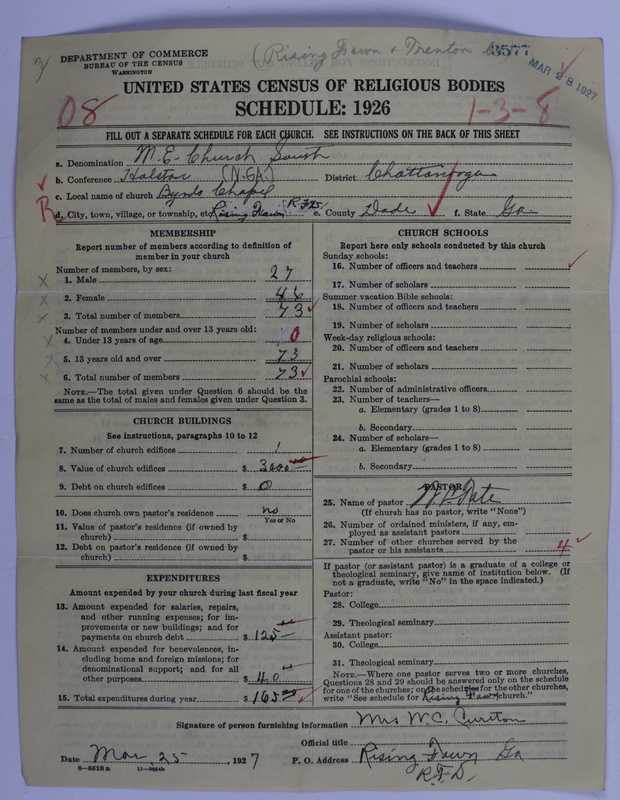 (Rising Fawn & Trenton
3577
MAR 28 1927
DEPARTMENT OF COMMERCE
BUREAU OF THE CENSUS
WASHINGTON
UNITED STATES CENSUS OF RELIGIOUS BODIES
SCHEDULE: 1926
08
1-3-8
FILL OUT A SEPARATE SCHEDULE FOR EACH CHURCH. SEE INSTRUCTIONS ON THE BACK OF THIS SHEET
a. Denomination M.E. Church South
b. Conference Holston (N. GA.) District Chattanooga
c. Local name of church Byrds Chapel
R
d. City, town, village, or township, etc. Rising Fawn R.F.D. e. County Dade f. State Ga
MEMBERSHIP
Report number of members according to definition of
member in your church
Number of members, by sex:
1. Male 27
2. Female 46
3. Total number of members 73
Number of members under and over 13 years old:
4. Under 13 years of age 0
5. 13 years old and over 73
6. Total number of members 73
NOTE.—The total given under Question 6 should be the
same as the total of males and females given under Question 3.
CHURCH BUILDINGS
See instructions, paragraphs 10 to 12
7. Number of church edifices 1
8. Value of church edifices $ 3000
9. Debt on church edifices $ 0
10. Does church own pastor's residence no
Yes or No
11. Value of pastor's residence (if owned by
church) $
12. Debt on pastor's residence (if owned by
church) $
EXPENDITURES
Amount expended by your church during last fiscal year
13. Amount expended for salaries, repairs,
and other running expenses; for im-
provements or new buildings; and for
payments on church debt $ 125
14. Amount expended for benevolences, in-
cluding home and foreign missions; for
denominational support; and for all
other purposes $ 40
15. Total expenditures during year $ 165
CHURCH SCHOOLS
Report here only schools conducted by this church
Sunday schools:
16. Number of officers and teachers
17. Number of scholars
Summer vacation Bible schools:
18. Number of officers and teachers
19. Number of scholars
Week-day religious schools:
20. Number of officers and teachers
21. Number of scholars
Parochial schools:
22. Number of administrative officers
23. Number of teachers—
a. Elementary (grades 1 to 8)
b. Secondary
24. Number of scholars—
a. Elementary (grades 1 to 8)
b. Secondary
PASTOR
25. Name of pastor
(If church has no pastor, write "None")
26. Number of ordained ministers, if any, em-
ployed as assistant pastors
27. Number of other churches served by the
pastor or his assistants 4
If pastor (or assistant pastor) is a graduate of a college or
theological seminary, give name of institution below. (If
not a graduate, write "No" in the space indicated.)
Pastor:
28. College
29. Theological seminary
Assistant pastor:
30. College
31. Theological seminary
NOTE.—Where one pastor serves two or more churches,
Questions 28 and 29 should be answered only on the schedule
for one of the churches; on the schedules for the other churches,
write "See schedule for Rising Fawn church."
Signature of person furnishing information Mrs W.C. Cureton
Official title
Date Mar. 25, 1927 P. O. Address Rising Fawn Ga
R.F.D.
8—5518 a